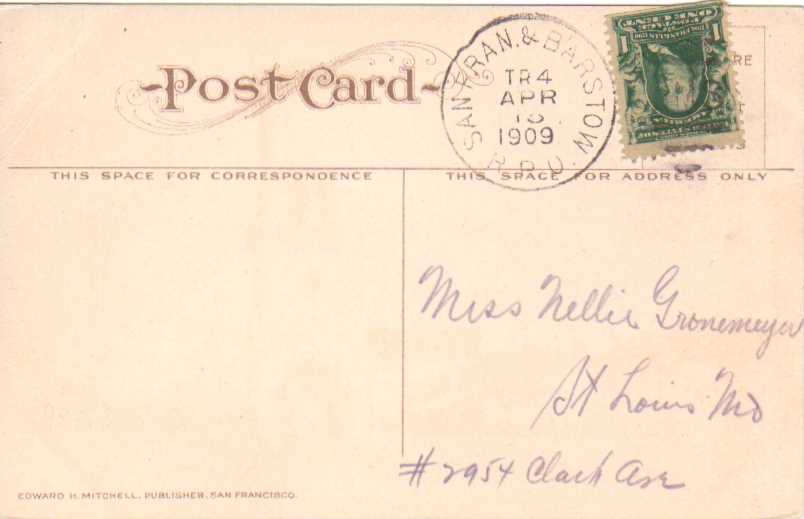 Post Card
SAN FRAN. & BARSTOW
TR4
APR
1909
R.P.O.
ONE CENT
1
1
THIS SPACE FOR CORRESPONDENCE
THIS SPACE FOR ADDRESS ONLY
Miss Nellie Gronemeyer
St Louis Mo
#2954 Clark Ave
EDWARD H. MITCHELL, PUBLISHER, SAN FRANCISCO.